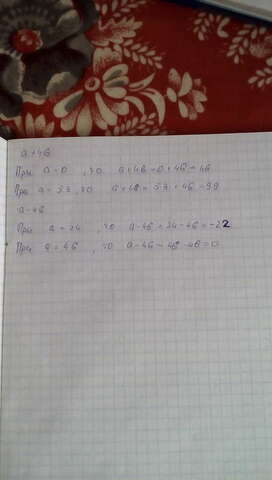 a+46
При a=0, то a+46=0+46=46
При a=53, то a+46=53+46=99
a-46
При a=24, то a-46=24-46=-22
При a=46, то a-46=46-46=0